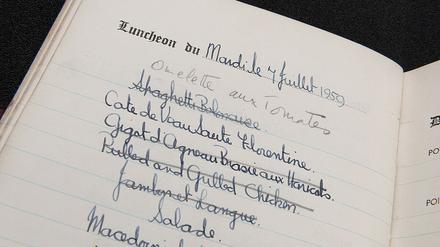 Luncheon du Mardi le 7 Juillet 1959
Omelette aux Tomates
Spaghetti Bolonaise.
Cote de Veau Saute Florentine.
Gigot d'Agneau Braise aux Haricots
and Grilled Chicken.
Jambon et Langue.
Salade.
PO
PO